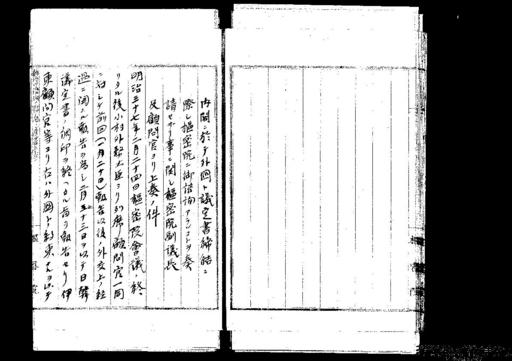 内閣ニ於テ外国ト議定書締結ニ
際シ枢密院ニ御諮詢アランコトヲ奏
請セサリシ事ニ関シ枢密院副議長
及顧問官ヨリ上奏ノ件
明治三十七年二月二十四日枢密院会議終
リタル後小村外務大臣ヨリ列席ノ顧問官一同
ニ対シテ前回(一月二十日)報告以後ノ外交上ノ経
過ニ関スル報告ヲ為シ二月二十三日ヲ以テ日韓
議定書ノ調印ヲ終ヘタル旨ヲ報告セリ伊
東顧問官等ヨリ右ハ外国ト約束スルモノ